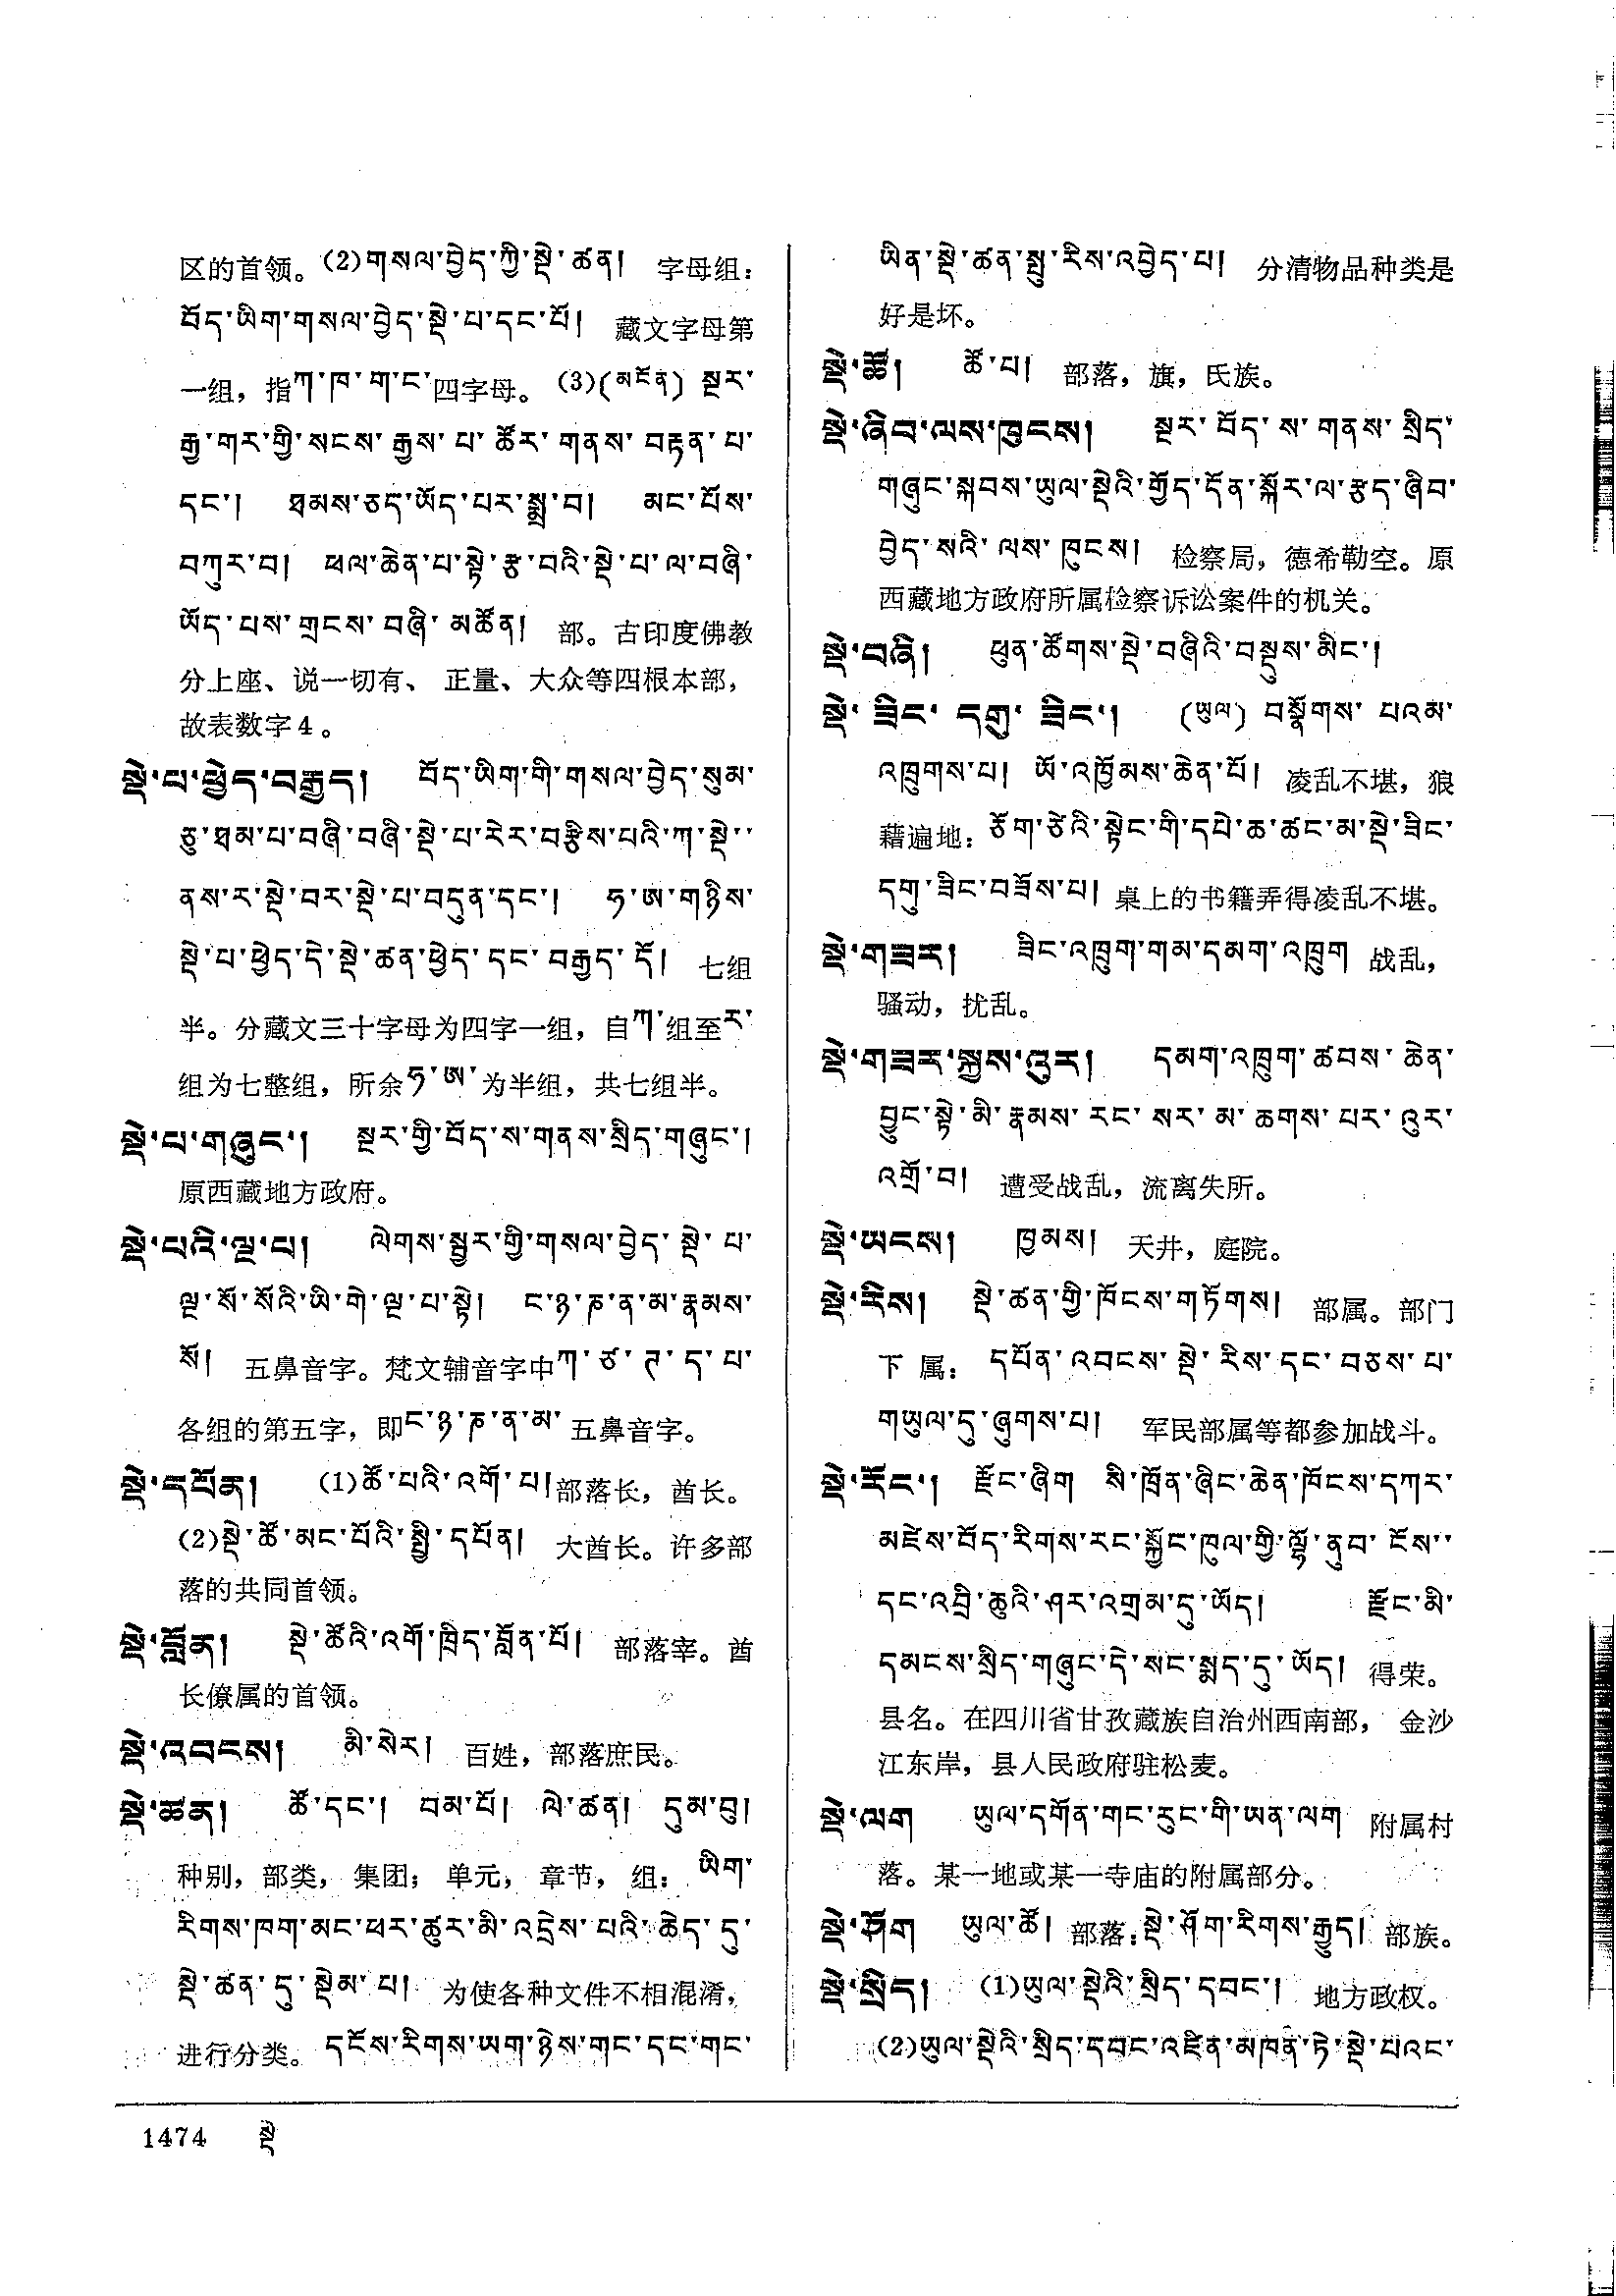 区的首领。(2)གསལ་བྱེད་ཀྱི་སྡེ་ཚན། 字母组：
བོད་ཡིག་གསལ་བྱེད་སྡེ་པ་དང་པོ། 藏文字母第
一组，指ཀ་ཁ་ག་ང་四字母。(3)(མངོན) སྔར་
རྒྱ་གར་གྱི་སངས་རྒྱས་པ་ཚོར་གནས་བརྟན་པ་
དང་། ཐམས་ཅད་ཡོད་པར་སྨྲ་བ། མང་པོས་
བཀུར་བ། ཕལ་ཆེན་པ་སྟེ་རྩ་བའི་སྡེ་པ་ལ་བཞི་
ཡོད་པས་གྲངས་བཞི་མཚོན། 部。古印度佛教
分上座、说一切有、正量、大众等四根本部，
故表数字4。
སྡེ་པ་ཕྱེད་བརྒྱད། བོད་ཡིག་གི་གསལ་བྱེད་སུམ་
ཅུ་ཐམ་པ་བཞི་བཞི་སྡེ་པ་རེར་བརྩིས་པའི་ཀ་སྡེ་་
ནས་ར་སྡེ་བར་སྡེ་པ་བདུན་དང་། ཧ་ཨ་གཉིས་
སྡེ་པ་ཕྱེད་དེ་སྡེ་ཚན་ཕྱེད་དང་བརྒྱད་དོ། 七组
半。分藏文三十字母为四字一组，自ཀ་组至ར་
组为七整组，所余ཧ་ཨ་为半组，共七组半。
སྡེ་པ་གཞུང་། སྔར་གྱི་བོད་ས་གནས་སྲིད་གཞུང་།
原西藏地方政府。
སྡེ་པའི་ལྔ་པ། ལེགས་སྦྱར་གྱི་གསལ་བྱེད་སྡེ་པ་
ལྔ་སོ་སོའི་ཡི་གེ་ལྔ་པ་སྟེ། ང་ཉ་ཎ་ན་མ་རྣམས་
སོ། 五鼻音字。梵文辅音字中ཀ་ཙ་ཊ་ད་པ་
各组的第五字，即ང་ཉ་ཎ་ན་མ་五鼻音字。
སྡེ་དཔོན། (1)ཚོ་པའི་འགོ་པ།部落长，酋长。
(2)སྡེ་ཚོ་མང་པོའི་སྤྱི་དཔོན། 大酋长。许多部
落的共同首领。
སྡེ་བློན། སྡེ་ཚོའི་འགོ་ཁྲིད་བློན་པོ། 部落宰。酋
长僚属的首领。
སྡེ་འབངས། མི་སེར། 百姓，部落庶民。
སྡེ་ཚན། ཚོ་དང་། བམ་པོ། ལེ་ཚན། དུམ་བུ།
种别，部类，集团；单元，章节，组：ཡིག་
རིགས་ཁག་མང་ཕར་ཚུར་མི་འདྲེས་པའི་ཆེད་དུ་
སྡེ་ཚན་དུ་སྡེམ་པ། 为使各种文件不相混淆，
进行分类。དངོས་རིགས་ཡག་ཉེས་གང་དང་གང་
ཡིན་སྡེ་ཚན་སྤུ་རིས་འབྱེད་པ། 分清物品种类是
好是坏。
སྡེ་ཚོ། ཚོ་པ། 部落，旗，氏族。
སྡེ་ཞིབ་ལས་ཁུངས། སྔར་བོད་ས་གནས་སྲིད་
གཞུང་སྐབས་ཡུལ་སྡེའི་གྱོད་དོན་སྐོར་ལ་རྩད་ཞིབ་
བྱེད་སའི་ལས་ཁུངས། 检察局，德希勒空。原
西藏地方政府所属检察诉讼案件的机关。
སྡེ་བཞི། ཕུན་ཚོགས་སྡེ་བཞིའི་བསྡུས་མིང་།
སྡེ་ཟིང་དགུ་ཟིང་། (ཡུལ) བསྙོགས་པའམ་
འཁྲུགས་པ། ཡོ་འཁྱོམས་ཆེན་པོ། 凌乱不堪，狼
藉遍地：ཅོག་ཙེའི་སྟེང་གི་དཔེ་ཆ་ཚང་མ་སྡེ་ཟིང་
དགུ་ཟིང་བཟོས་པ། 桌上的书籍弄得凌乱不堪。
སྡེ་གཟར། ཟིང་འཁྲུག་གམ་དམག་འཁྲུག 战乱，
骚动，扰乱。
སྡེ་གཟར་སྐྱས་འུར། དམག་འཁྲུག་ཚབས་ཆེན་
བྱུང་སྟེ་མི་རྣམས་རང་སར་མ་ཆགས་པར་འུར་
འགྲོ་བ། 遭受战乱，流离失所。
སྡེ་ཡངས། ཁྱམས། 天井，庭院。
སྡེ་རིས། སྡེ་ཚན་གྱི་ཁོངས་གཏོགས། 部属。部门
下属：དཔོན་འབངས་སྡེ་རིས་དང་བཅས་པ་
གཡུལ་དུ་ཞུགས་པ། 军民部属等都参加战斗。
སྡེ་རོང་། རྫོང་ཞིག སི་ཁྲོན་ཞིང་ཆེན་ཁོངས་དཀར་
མཛེས་བོད་རིགས་རང་སྐྱོང་ཁུལ་གྱི་ལྷོ་ནུབ་ངོས་་
དང་འབྲི་ཆུའི་ཤར་འགྲམ་དུ་ཡོད། རྫོང་མི་
དམངས་སྲིད་གཞུང་དེ་སང་སྨད་དུ་ཡོད། 得荣。
县名。在四川省甘孜藏族自治州西南部，金沙
江东岸，县人民政府驻松麦。
སྡེ་ལག ཡུལ་དགོན་གང་རུང་གི་ཡན་ལག 附属村
落。某一地或某一寺庙的附属部分。
སྡེ་ཤོག ཡུལ་ཚོ། 部落：སྡེ་ཤོག་རིགས་རྒྱུད། 部族。
སྡེ་སྲིད། (1)ཡུལ་སྡེའི་སྲིད་དབང་། 地方政权。
(2)ཡུལ་སྡེའི་སྲིད་དབང་འཛིན་མཁན་ཏེ་སྡེ་པའང་
1474 སྡེ